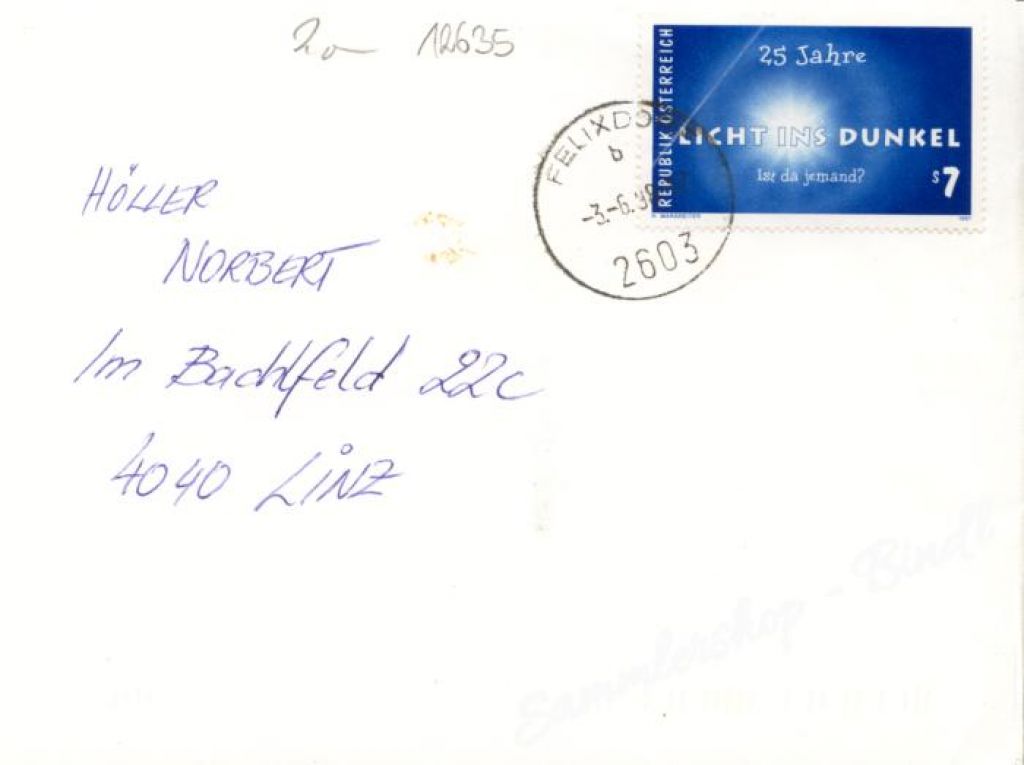 12635
REPUBLIK ÖSTERREICH
25 Jahre
LICHT INS DUNKEL
Ist da jemand?
S7
b
-3.-6.98
2603
HÖLLER
NORBERT
Im Bachlfeld 22c
4040 LINZ
Sammlershop - Bindl